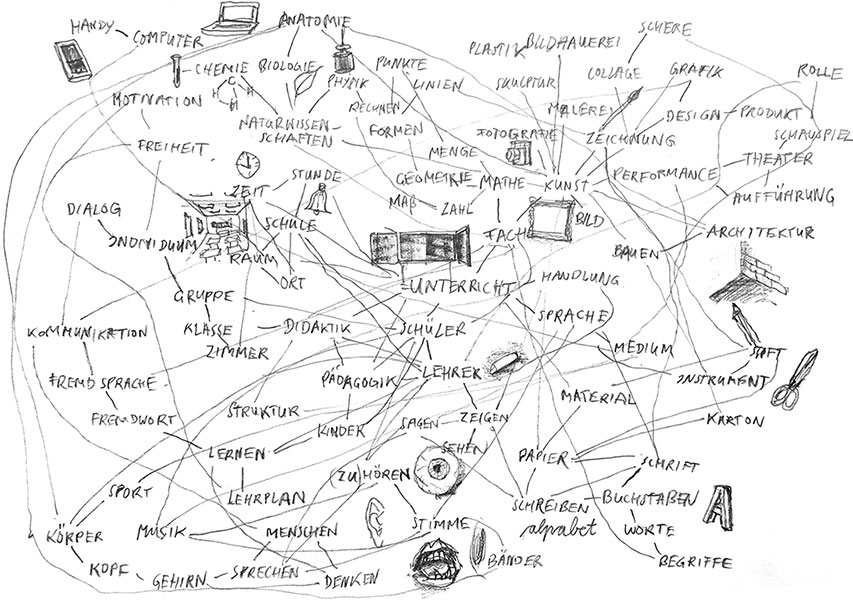 HANDY
COMPUTER
ANATOMIE
CHEMIE
BIOLOGIE
PHYSIK
PUNKTE
LINIEN
PLASTIK
BILDHAUEREI
SCHERE
SKULPTUR
COLLAGE
GRAFIK
ROLLE
C
H
H
H
MOTIVATION
RECHNEN
MALEREI
DESIGN
PRODUKT
NATURWISSEN-
SCHAFTEN
FORMEN
FOTOGRAFIE
ZEICHNUNG
SCHAUSPIEL
FREIHEIT
MENGE
THEATER
STUNDE
GEOMETRIE
MATHE
KUNST
PERFORMANCE
ZEIT
MAß
ZAHL
AUFFÜHRUNG
DIALOG
SCHULE
BILD
INDIVIDUUM
FACH
ARCHITEKTUR
RAUM
BAUEN
ORT
UNTERRICHT
HANDLUNG
GRUPPE
SPRACHE
KOMMUNIKATION
KLASSE
DIDAKTIK
SCHÜLER
ZIMMER
MEDIUM
STIFT
FREMDSPRACHE
PÄDAGOGIK
LEHRER
INSTRUMENT
MATERIAL
FREMDWORT
STRUKTUR
KINDER
SAGEN
ZEIGEN
KARTON
LERNEN
SEHEN
PAPIER
SCHRIFT
(ZU)HÖREN
SPORT
LEHRPLAN
SCHREIBEN
BUCHSTABEN
A
KÖRPER
MUSIK
MENSCHEN
STIMME
alphabet
WORTE
KOPF
GEHIRN
SPRECHEN
DENKEN
BÄNDER
BEGRIFFE